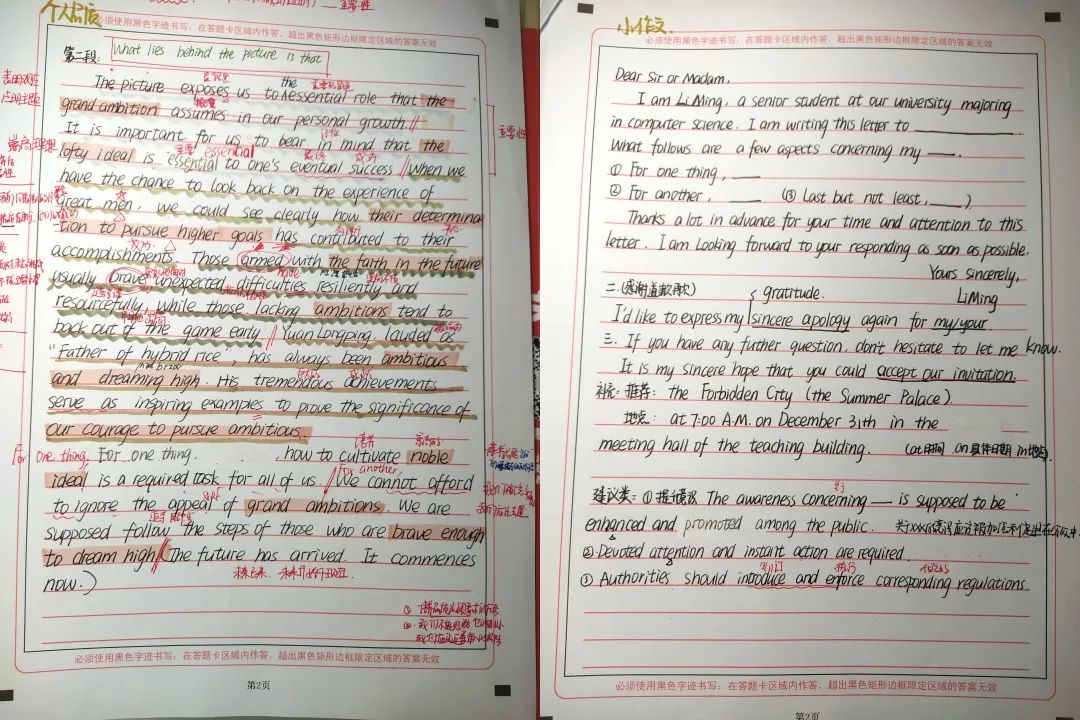 个人品质
必须使用黑色字迹书写;在答题卡区域内作答,超出黑色矩形边框限定区域的答案无效
第二段:
What lies behind the picture is that
The picture exposes us to the essential role that the
grand ambition assumes in our personal growth.
主要性
It is important for us to bear in mind that the
essential
lofty ideal is essential to one's eventual success. When we
have the chance to look back on the experience of
great men, we could see clearly how their determina
-tion to pursue higher goals has contributed to their
accomplishments. Those armed with the faith in the future
usually brave unexpected difficulties resiliently and
resourcefully, while those lacking ambitions tend to
back out of the game early. Yuan Longping, lauded as
"Father of hybrid rice", has always been ambitious
and dreaming high. His tremendous achievements
serve as inspiring examples to prove the significance of
our courage to pursue ambitious.
For one thing. For one thing. , how to cultivate noble
ideal is a required task for all of us. We cannot afford
For another,
to ignore the appeal of grand ambitions. We are
supposed follow the steps of those who are brave enough
to dream high. The future has arrived. It commences
now.)
必须使用黑色字迹书写;在答题卡区域内作答,超出黑色矩形边框限定区域的答案无效
第2页
小作文
必须使用黑色字迹书写;在答题卡区域内作答,超出黑色矩形边框限定区域的答案无效
Dear Sir or Madam,
I am Li Ming, a senior student at our university majoring
in computer science. I am writing this letter to
What follows are a few aspects concerning my
① For one thing,
② For another, (③ Last but not least, )
Thanks a lot in advance for your time and attention to this
letter. I am looking forward to your responding as soon as possible.
Yours sincerely,
Li Ming
二.(感谢道歉再次) gratitude.
I'd like to express my sincere apology again for my/your
三. If you have any futher question, don't hesitate to let me know.
It is my sincere hope that you could accept our invitation.
补充:推荐:the Forbidden City (the Summer Palace).
地点:at 7:00 A.M. on December 31th in the
meeting hall of the teaching building. (at时间 on具体日期 in地点).
建议类:①提倡 The awareness concerning is supposed to be
enhanced and promoted among the public.
② Devoted attention and instant action are required.
③ Authorities should introduce and enforce corresponding regulations.
必须使用黑色字迹书写;在答题卡区域内作答,超出黑色矩形边框限定区域的答案无效
第2页